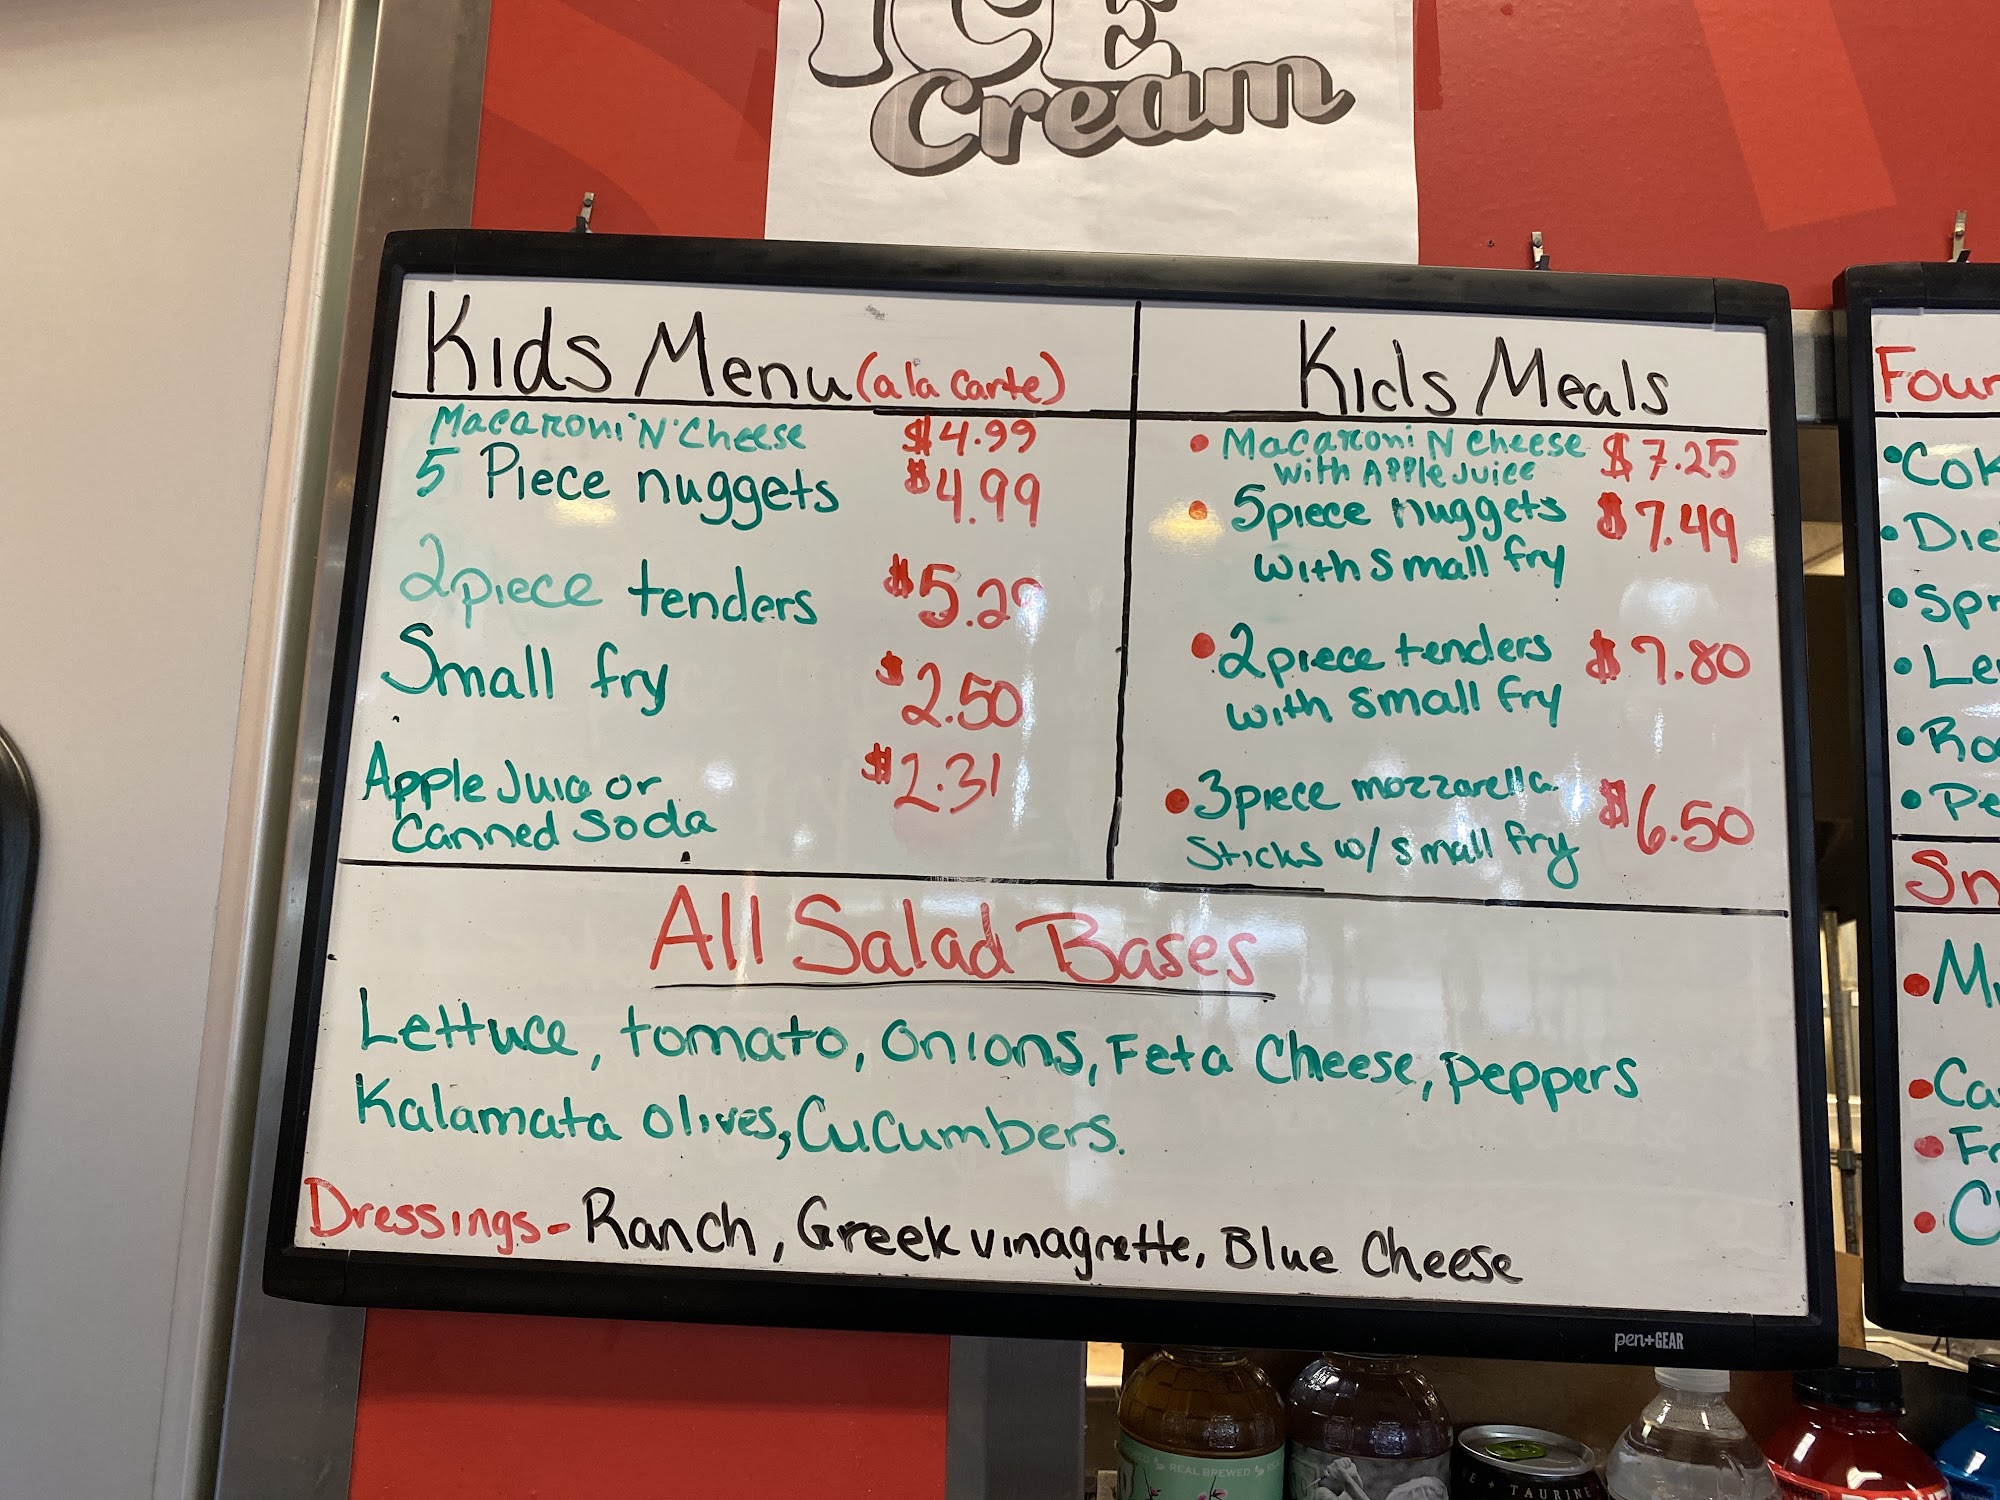 ICE
Cream
Kids Menu (ala carte)
Macaroni 'N' Cheese $4.99
5 Piece nuggets $4.99
2piece tenders $5.29
Small fry $2.50
Apple Juice or $2.31
Canned Soda
Kids Meals
• Macaroni N Cheese $7.25
with Apple Juice
• 5piece nuggets $7.49
with small fry
• 2piece tenders $7.80
with small fry
• 3piece mozzarella $6.50
Sticks w/ small fry
All Salad Bases
Lettuce, tomato, onions, Feta Cheese, peppers
Kalamata olives, Cucumbers.
Dressings - Ranch, Greek vinagrette, Blue Cheese
pen+GEAR
REAL BREWED
+ TAURINE